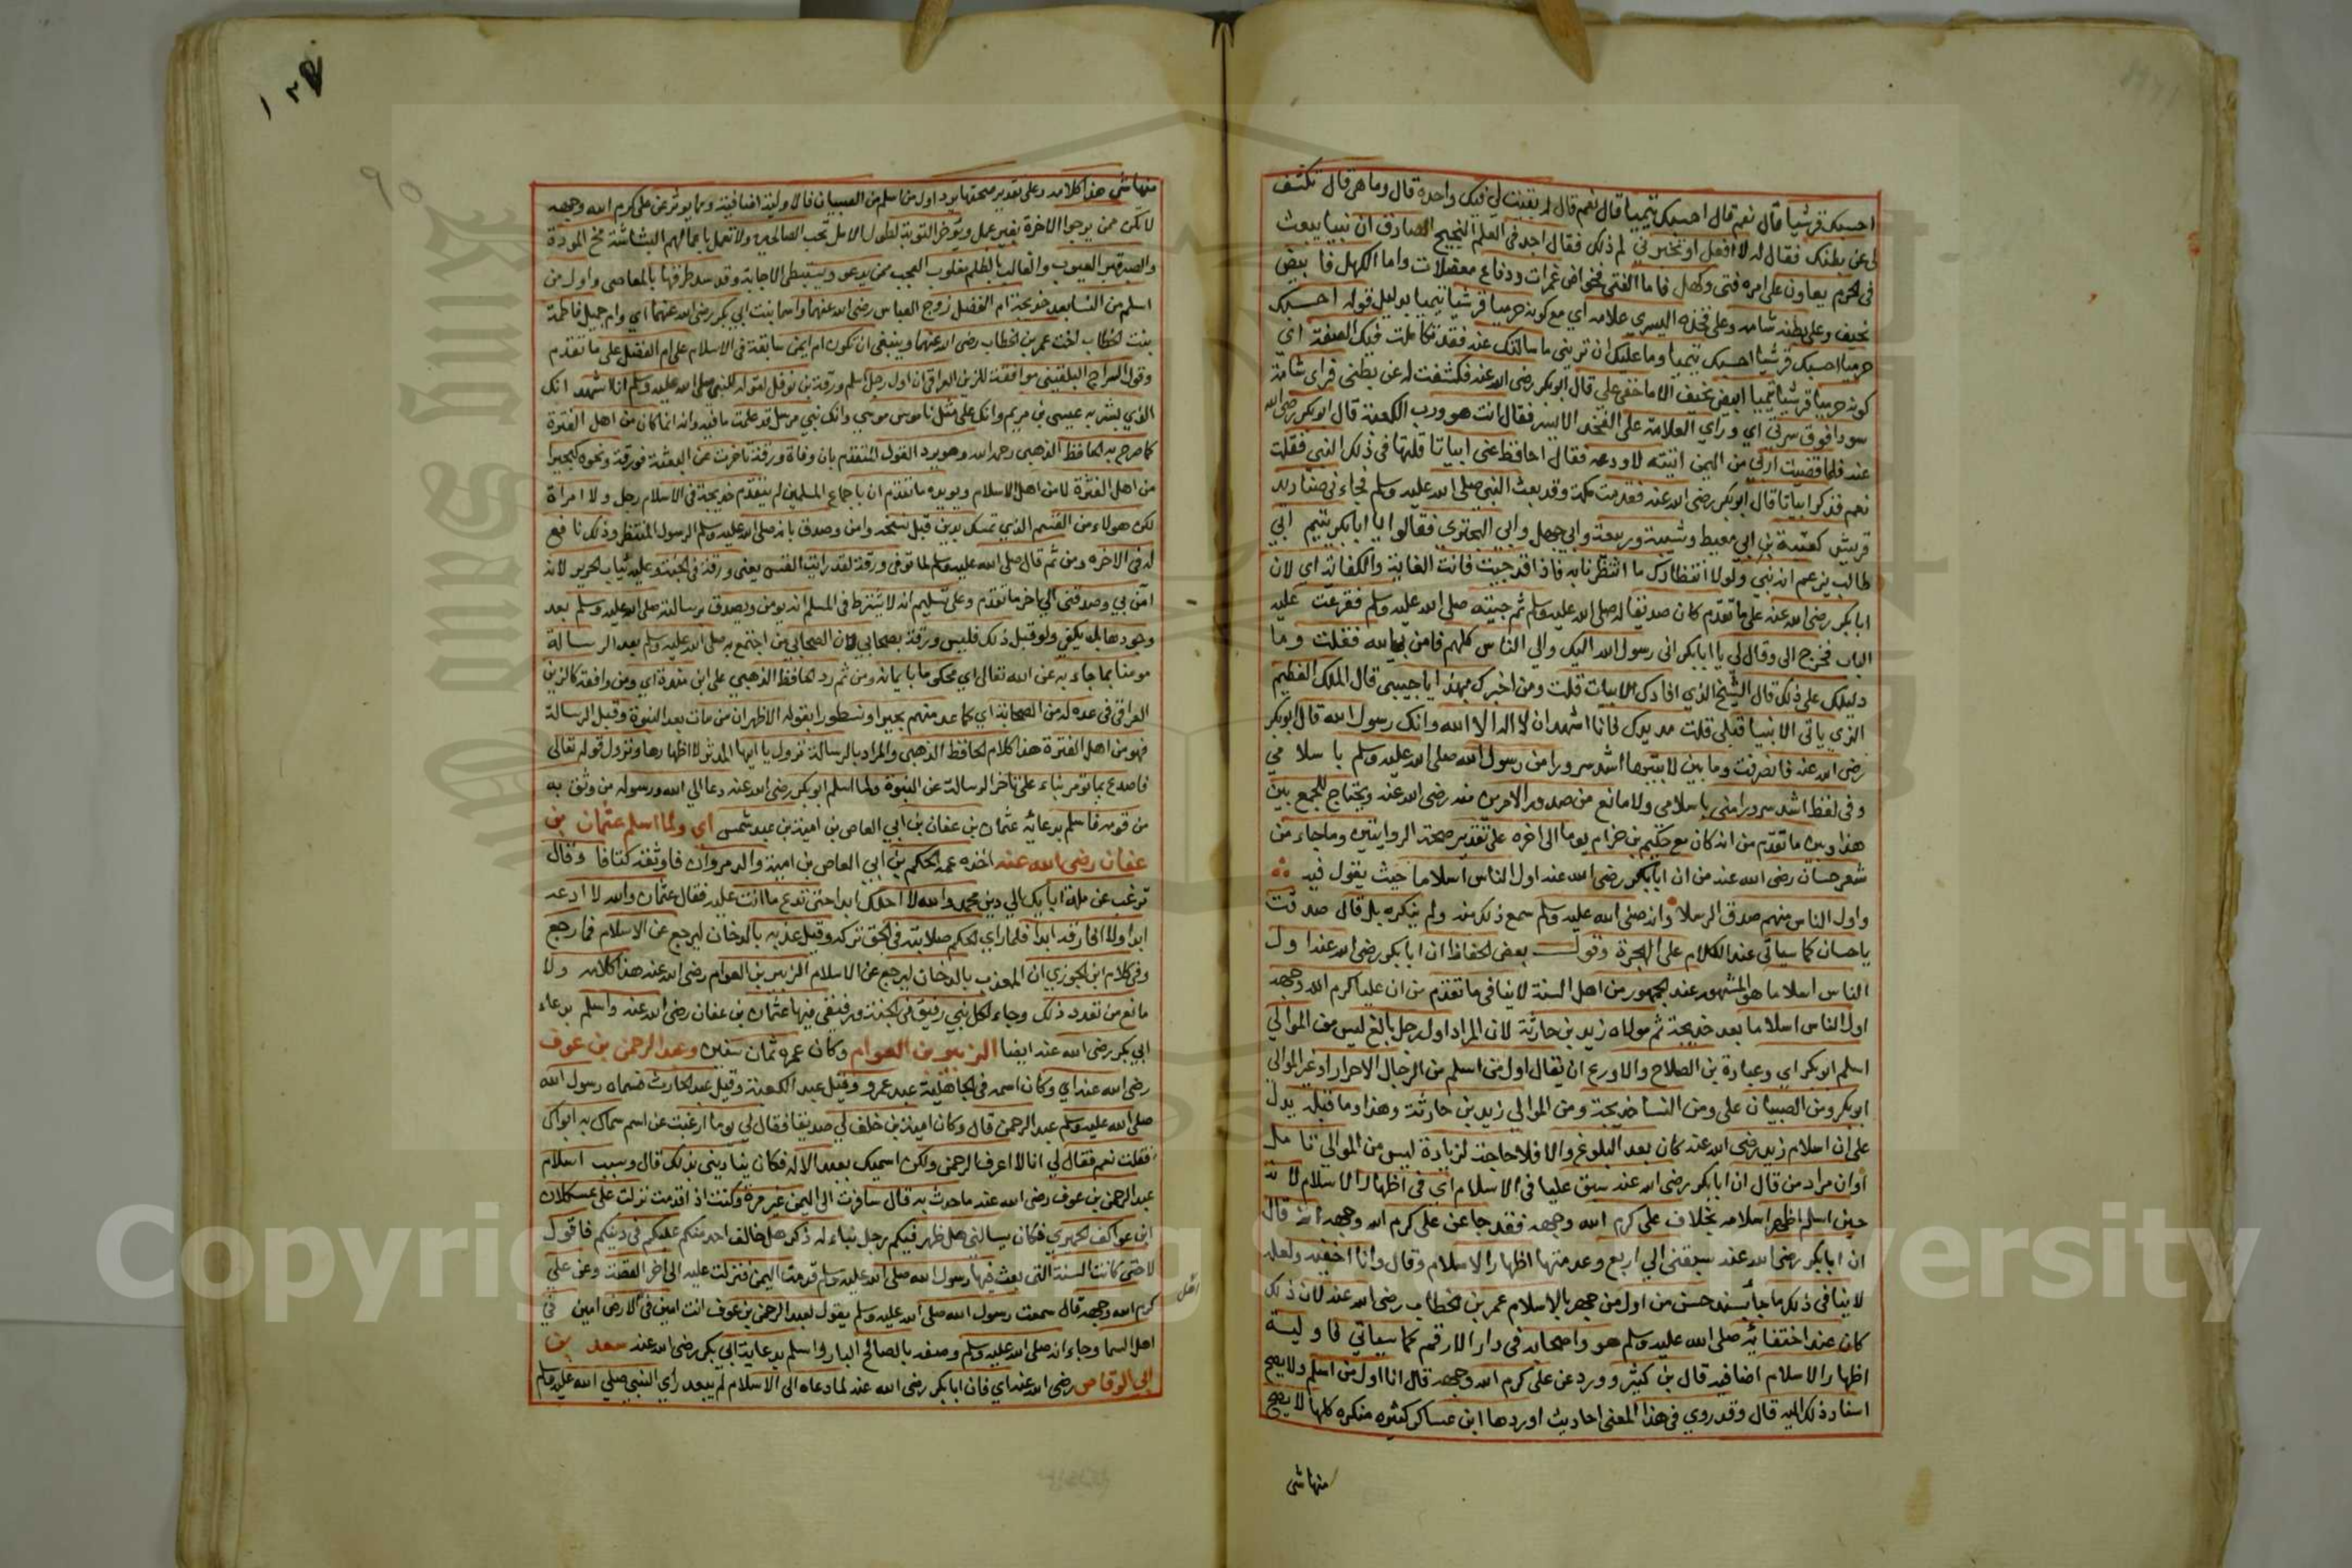 احسبك قرشيا قال نعم قال احسبك تيميا قال نعم قال لم يبقيت لي فيك واحدة قال وما هي قال تكشف
لي عن بطنك فقال له لا افعل او تخبرني لم ذلك فقال اجد في العلم النجيح الصادق ان نبيا يبعث
في الحرم يعاون على امره فتى وكهل فاما الفتى فخواض غمرات ودفاع معضلات واما الكهل فابيض
نحيف وعلى بطنه شامه وعلى فخذه اليسري علامه اي مع كونه حرميا قرشيا تيميا بدليل قوله احسبك
حرميا احسبك قرشيا احسبك تيميا وما عليك ان تريني ما سالتك عنه فقد تكاملت فيك الصفة اي
كونه حرميا قرشيا تيميا ابيض نحيف الا ما خفي على قال ابوبكر رضى الله عنه فكشفت له عن بطنى فراى شامة
سودا فوق سرتي اي وراي العلامة على الفخذ الايسر فقال انت هو ورب الكعبة قال ابوبكر رضى الله
عنه فلما قضيت اربي من اليمن اتيته لاودعه فقال احافظ عني ابياتا قلتها فى ذلك النبي فقلت
نعم فذكر ابياتا قال ابوبكر رضى الله عنه فقدمت مكة وقد بعث النبي صلى الله عليه وسلم فجاءني صناديد
قريش كعقبة بن ابي معيط وشيبة وربيعة وابي جهل وابي البحتري فقالوا يا ابابكر يتيم ابي
طالب يزعم انه نبي ولولا انتظارك ما انتظرنا به فاذا قد جيت فانت الغاية والكفاية اي لان
ابابكر رضى الله عنه على ما تقدم كان صديقا له صلى الله عليه وسلم ثم جيته صلى الله عليه وسلم فقرعت عليه
الباب فخرج الي وقال لي يا ابابكر انى رسول الله اليك والي الناس كلهم فامن بالله فقلت وما
دليلك على ذلك قال الشيخ الذي افادك الابيات قلت ومن اخبرك بهذا يا حبيبي قال الملك العظيم
الذي ياتى الانبيا قبلي قلت مد يدك فانا اشهد ان لا اله الا الله وانك رسول الله قال ابوبكر
رضى الله عنه فانصرفت وما بين لابتيها اشد سرورا من رسول الله صلى الله عليه وسلم باسلامي
وفى لفظ اشد سرورا منى باسلامى ولا مانع من صدور الامرين منه رضى الله عنه ويحتاج للجمع بين
هذا وبين ما تقدم من انه كان مع حكيم بن حزام يوما الى اخره على تقدير صحة الروايتين وما جاء من
شعر حسان رضى الله عنه من ان ابابكر رضى الله عنه اول الناس اسلاما حيث يقول فيه
واول الناس منهم صدق الرسلا وانه صلى الله عليه وسلم سمع ذلك منه ولم ينكره بل قال صدقت
ياحسان كما سياتى عند الكلام على الهجرة وقول بعض الحفاظ ان ابابكر رضى الله عنه اول
الناس اسلاما هو المشهور عند الجمهور من اهل السنة لا ينافى ما تقدم من ان عليا كرم الله وجهه
اول الناس اسلاما بعد خديجة ثم مولاه زيد بن حارثة لان المراد اول رجل بالغ ليس من الموالي
اسلم ابوبكر اي وعبارة بن الصلاح والاورع ان يقال اول من اسلم من الرجال الاحرار او غير الموالي
ابوبكر ومن الصبيان على ومن النسا خديجة ومن الموالي زيد بن حارثة وهذا وما قبله يدل
على ان اسلام زيد رضى الله عنه كان بعد البلوغ والا فلا حاجة لزيادة ليس من الموالي تامل
او ان مراد من قال ان ابابكر رضى الله عنه سبق عليا فى الاسلام اي فى اظهار الاسلام لانه
حين اسلم اظهر اسلامه بخلاف على كرم الله وجهه فقد جا عن على كرم الله وجهه انه قال
ان ابابكر رضى الله عنه سبقنى الي اربع وعد منها اظهار الاسلام وقال وانا اخفيه ولعله
لا ينافى ذلك ما جا بسند حسن من اول من جهر بالاسلام عمر بن الخطاب رضى الله عنه لان ذلك
كان عند اختفائه صلى الله عليه وسلم هو واصحابه فى دار الارقم كما سياتي فاولية
اظهار الاسلام اضافيه قال بن كثير وورد عن على كرم الله وجهه قال انا اول من اسلم ولا يصح
اسناد ذلك اليه قال وقد روي فى هذا المعنى احاديث اوردها ابن عساكر كثيره منكره كلها لا يصح
منها شى
منها شي هذا كلامه وعلى تقدير صحتها يراد اول من اسلم من الصبيان فالاولية اضافية ومما يوثر عن على كرم الله وجهه
لا تكن ممن يرجوا الاخرة بغير عمل ويؤخر التوبة لطول الامل تحب الصالحين ولا تعمل باعمالهم البشاشة مخ المودة
والصبر قبر العيوب والغالب بالظلم مغلوب العجب ممن يدعو ويستبطى الاجابة وقد سد طرقها بالمعاصى واول من
اسلم من النسا بعد خديجة ام الفضل زوج العباس رضى الله عنهما واسما بنت ابي بكر رضى الله عنهما اي وام جميل فاطمة
بنت الخطاب اخت عمر بن الخطاب رضى الله عنهما وينبغى ان تكون ام ايمن سابقة فى الاسلام على ام الفضل على ما تقدم
وقول السراج البلقينى موافقة للزين العراقى ان اول رجل اسلم ورقة بن نوفل لقوله للنبي صلى الله عليه وسلم انا اشهد انك
الذي بشر به عيسى بن مريم وانك على مثل ناموس موسي وانك نبي مرسل قد علمت ما فيه وانه انما كان من اهل الفترة
كما صرح به الحافظ الذهبي رحمه الله وهو يرد القول المتقدم بان وفاة ورقة تاخرت عن البعثة فورقة ونحوه كبحيرا
من اهل الفترة لا من اهل الاسلام ويويده ما تقدم ان باجماع المسلمين لم يتقدم خديجة فى الاسلام رجل ولا امراة
لكن هولاء من القسم الذي تمسك بدين قبل نسخه وامن وصدق بانه صلى الله عليه وسلم الرسول المنتظر وذلك نافع
له فى الاخره ومن ثم قال صلى الله عليه وسلم لما توفى ورقة لقد رايت القس يعنى ورقة فى الجنة وعليه ثياب الحرير لانه
امن بي وصدقنى الي اخر ما تقدم وعلى تسليم انه لا يشترط فى المسلم ان يومن ويصدق برسالته صلى الله عليه وسلم بعد
وجودها بل يكفي ولو قبل ذلك فليس ورقة بصحابي لان الصحابي من اجتمع به صلى الله عليه وسلم بعد الرسالة
مومنا بما جاء به عن الله تعالى اي محكوما بايمانه ومن ثم رد الحافظ الذهبي على ابن منده اي ومن وافقه كالزين
العراقى فى عده له من الصحابة اي كما عد منهم بحيرا ونسطورا بقوله الاظهر ان من مات بعد النبوة وقبل الرسالة
فهو من اهل الفترة هذا كلام الحافظ الذهبى والمراد بالرسالة نزول يا ايها المدثر لا اظهارها ونزول قوله تعالى
فاصدع بما تومر بناء على تاخر الرسالة عن النبوة ولما اسلم ابوبكر رضى الله عنه دعا الي الله ورسوله من وثق به
من قومه فاسلم بدعائه عثمان بن عفان بن ابي العاص بن امية بن عبد شمس اي ولما اسلم عثمان بن
عفان رضى الله عنه اخذه عمه الحكم بن ابي العاص بن امية والد مروان فاوثقه كتافا وقال
ترغب عن ملة ابايك الي دين محمد والله لا احلك ابدا حتى تدع ما انت عليه فقال عثمان والله لا ادعه
ابدا ولا افارقه ابدا فلما راي الحكم صلابته فى الحق تركه وقيل عذبه بالدخان ليرجع عن الاسلام فما رجع
وفى كلام ابن الجوزي ان المعذب بالدخان ليرجع عن الاسلام الزبير بن العوام رضى الله عنه هذا كلامه ولا
مانع من تعدد ذلك وجاء لكل نبي رفيق فى الجنة ورفيقى فيها عثمان بن عفان رضى الله عنه واسلم بدعاء
ابي بكر رضى الله عنه ايضا الزبير بن العوام وكان عمره ثمان سنين وعبد الرحمن بن عوف
رضى الله عنه اي وكان اسمه فى الجاهلية عبد عمرو وقيل عبد الكعبة وقيل عبد الحارث فسماه رسول الله
صلى الله عليه وسلم عبد الرحمن قال وكان امية بن خلف لي صديقا فقال لي يوما ارغبت عن اسم سماك به ابواك
فقلت نعم فقال لي انا لا اعرف الرحمن ولكن اسميك بعبد الاله فكان يناديني بذلك قال وسبب اسلام
عبد الرحمن بن عوف رضى الله عنه ما حدث به قال سافرت الى اليمن غير مرة وكنت اذا قدمت نزلت على عسكلان
ابن عواكف الحميري فكان يسالنى هل ظهر فيكم رجل له نباء له ذكر هل خالف احد منكم عليكم فى دينكم فاقول
لا حتى كانت السنة التى بعث فيها رسول الله صلى الله عليه وسلم قدمت اليمن فنزلت عليه الى اخر القصة وعن علي
كرم الله وجهه قال سمعت رسول الله صلى الله عليه وسلم يقول لعبد الرحمن بن عوف انت امين فى الارض امين في
اهل السما وجاء انه صلى الله عليه وسلم وصفه بالصالح البار واسلم بدعاية ابي بكر رضى الله عنه سعد بن
ابي الوقاص رضى الله عنه اي فان ابابكر رضى الله عنه لما دعاه الى الاسلام لم يبعد راي النبي صلي الله عليه وسلم
٩٥
Copyright © King Saud University